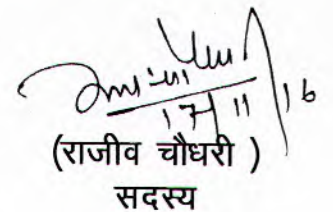 17/11/16
(राजीव चौधरी )
सदस्य